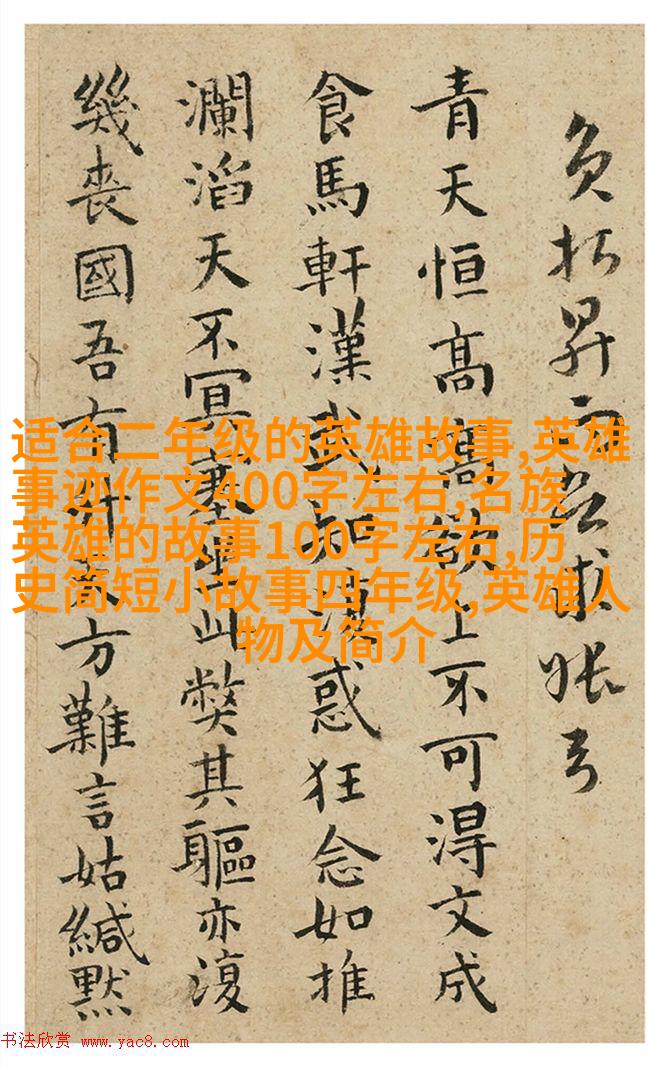 青天恒高高欲上不可得文成
食馬軒漢武惑狂念如推
瀾滔天不冥塞坐此弊其軀亦復
幾喪國吾有升天方難言姑緘默
适合二年级的英雄故事,英雄
事迹作文400字左右,名族
英雄的故事100字左右,历
史简短小故事四年级,英雄人
物及简介
书法欣赏 www.yac8.com